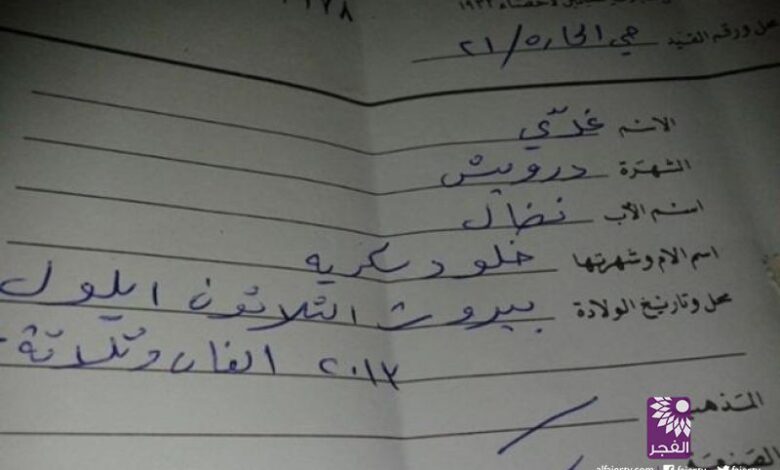 ١٩٣٢
محل ورقم القيد حي الحاره / ٢١
الاسم غدي
الشهرة درويش
اسم الأب نضال
اسم الام وشهرتها خلود سكريه
محل وتاريخ الولادة بيروت الثلاثون ايلول
٢٠١٣ الفان وثلاثة
المذهب
الفجر